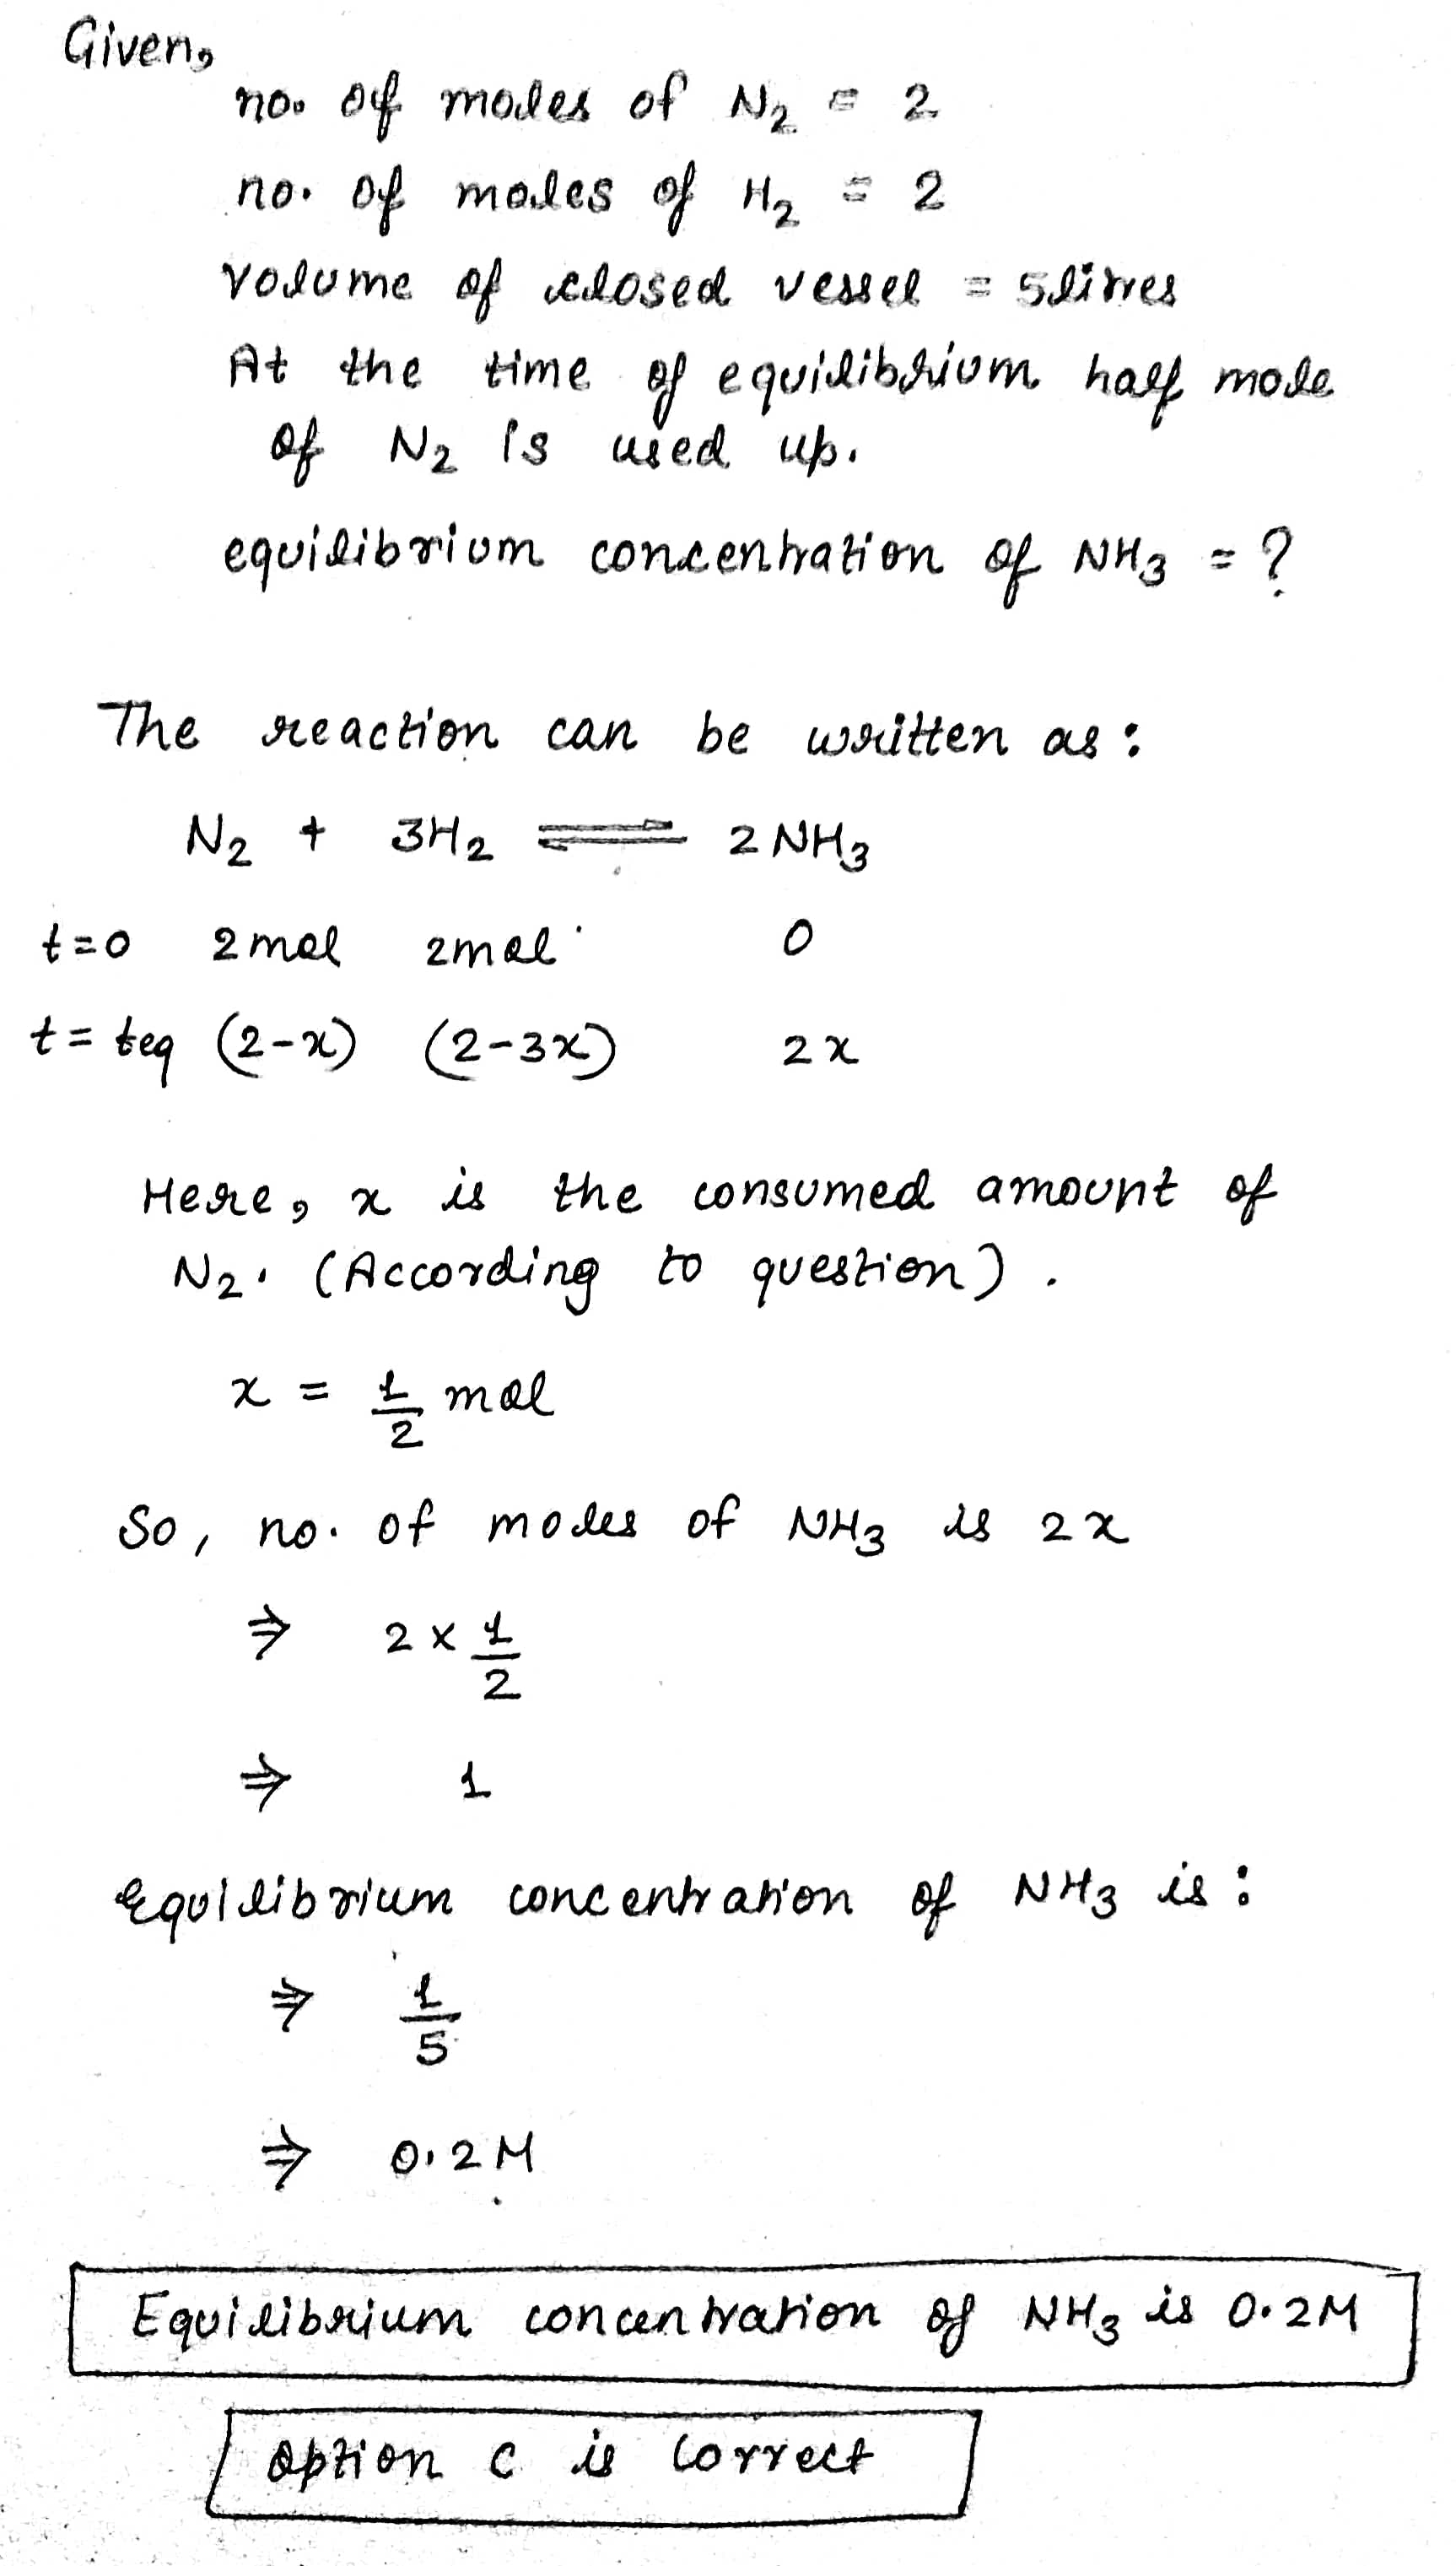 Given,
no. of moles of N₂ = 2
no. of moles of H₂ = 2
volume of closed vessel = 5 litres
At the time of equilibrium half mole
of N₂ is used up.
equilibrium concentration of NH₃ = ?
The reaction can be written as :
N₂ + 3H₂ ⇌ 2NH₃
t=0 2mol 2mol 0
t= teq (2-x) (2-3x) 2x
Here, x is the consumed amount of
N₂. (According to question).
x = 1/2 mol
So, no. of moles of NH₃ is 2x
⇒ 2 × 1/2
⇒ 1
Equilibrium concentration of NH₃ is :
⇒ 1/5
⇒ 0.2M
Equilibrium concentration of NH₃ is 0.2M
Option C is Correct